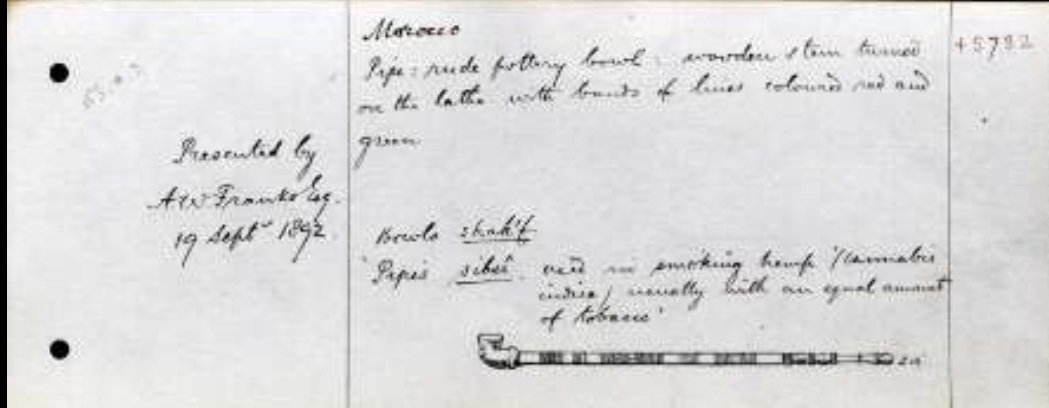 Morocco
Pipe: rude pottery bowl: wooden stem turned
on the lathe with bands of lines coloured red and
green
+5782
Presented by
A W Franks Esq.
19 Sept 1892.
Bowls shak'f
'Pipes sibsi used in smoking hemp (Cannabis
indica) usually with an equal amount
of tobacco'